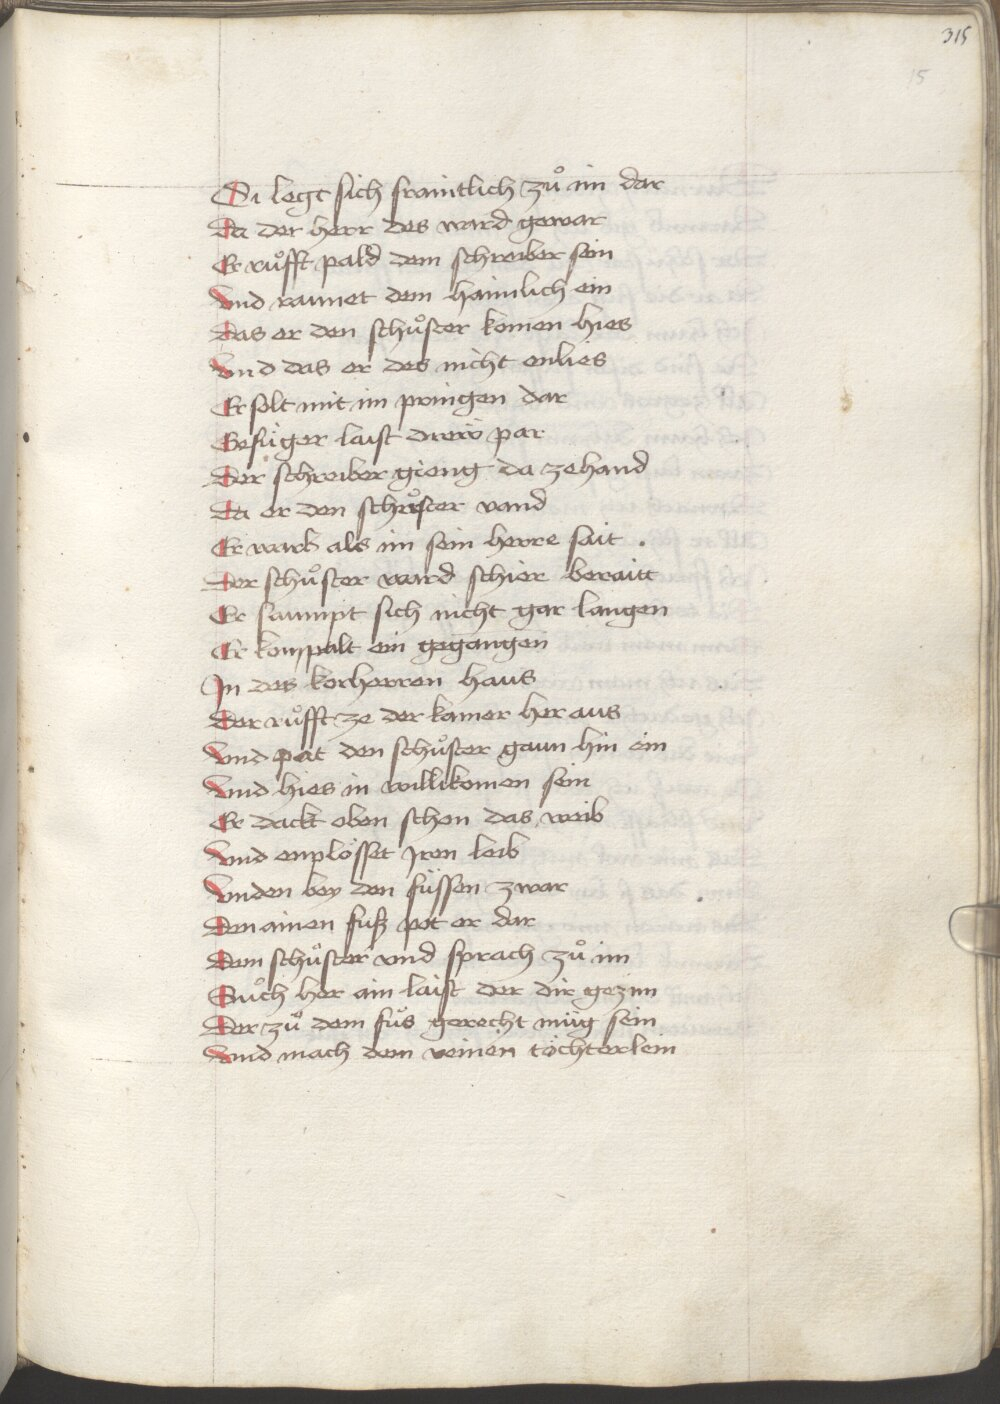 315
15
Si legt sich fraintlich zuͦ im dar
Da der herr des ward gewar
Er ruͦfft pald dem schreiber sein
Vnd raunet dem haimlich ein
Das er den schuͦster komen hies
Vnd das er des nicht enlies
Er solt mit im pringen dar
Gefuͤger laist dreiv par
Der schreiber gieng da zehand
Da er den schuͦster vand
Er warb als im sein herre sait .
Der schuͦster ward schier beraitt
Er saumpt sich nicht gar langen
Er kom palt ein gegangen
In des korherren haus
Der ruͦfft ze der kamer her aus
Vnd pat den schuͦster gaun hin ein
Vnd hies in willikomen sein
Er dackt oben schon das weib
Vnd enplösset Iren leib
Vnden bey den füssen zwar
Den ainen fusz pot er dar
Dem schuͦster vnd sprach zuͦ im
Suͦch her ain laist der dir gezim
Der zuͦ dem fuͦs gerecht müg sein
Vnd mach dem veinen töchterlein